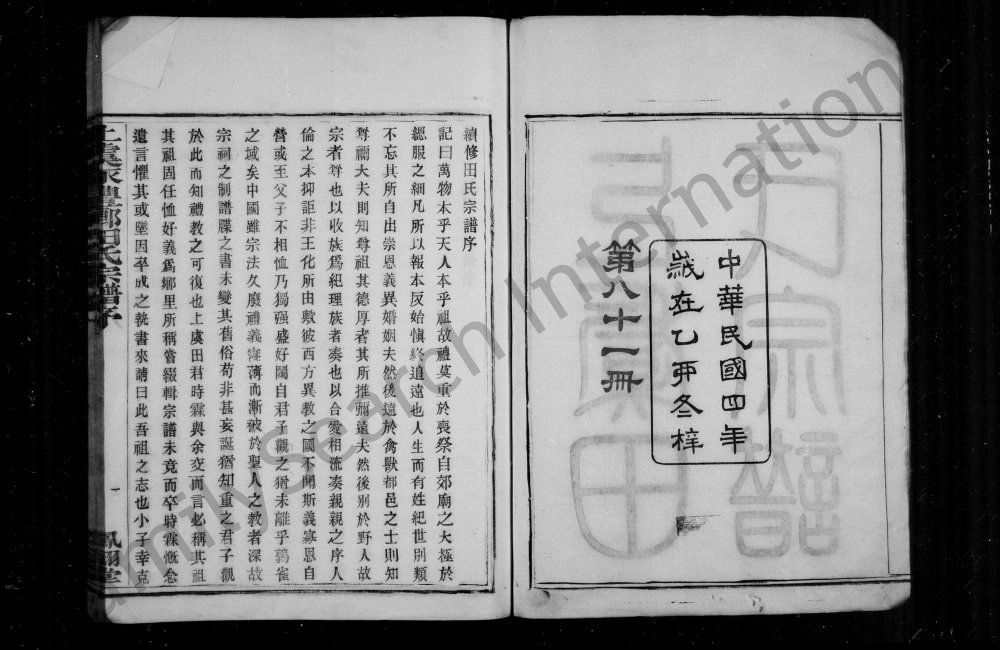 中華民國四年
歲在乙卯冬梓
第八十一冊
續修田氏宗譜序
記曰萬物本乎天人本乎祖故禮莫重於喪祭自郊廟之大極於
緦服之細凡所以報本反始愼終追遠也人生而有姓紀世別類
不忘其所自出崇恩義異婚姻夫然後遠於禽獸都邑之士則知
尊禰大夫則知尊祖其德厚者其所推彌遠夫然後別於野人故
宗者尊也以收族爲紀理族者湊也以合愛相流湊親親之序人
倫之本抑詎非王化所由敷彼西方異敎之國不聞斯義寡恩自
營或至父子不相恤乃獨强盛好鬩自君子觀之猶未離乎鶉雀
之域矣中國雖宗法久廢禮義寖薄而漸被於聖人之敎者深故
宗祠之制譜牒之書未變其舊俗苟非甚妄誕猶知重之君子觀
於此而知禮敎之可復也上虞田君時霖與余交而言必稱其祖
其祖固任恤好義爲鄉里所稱嘗綴輯宗譜未竟而卒時霖慨念
遺言懼其或墜因卒成之執書來請曰此吾祖之志也小子幸克
上虞永豐鄉田氏宗譜序
一
鳳翔堂
田氏宗譜
Search International